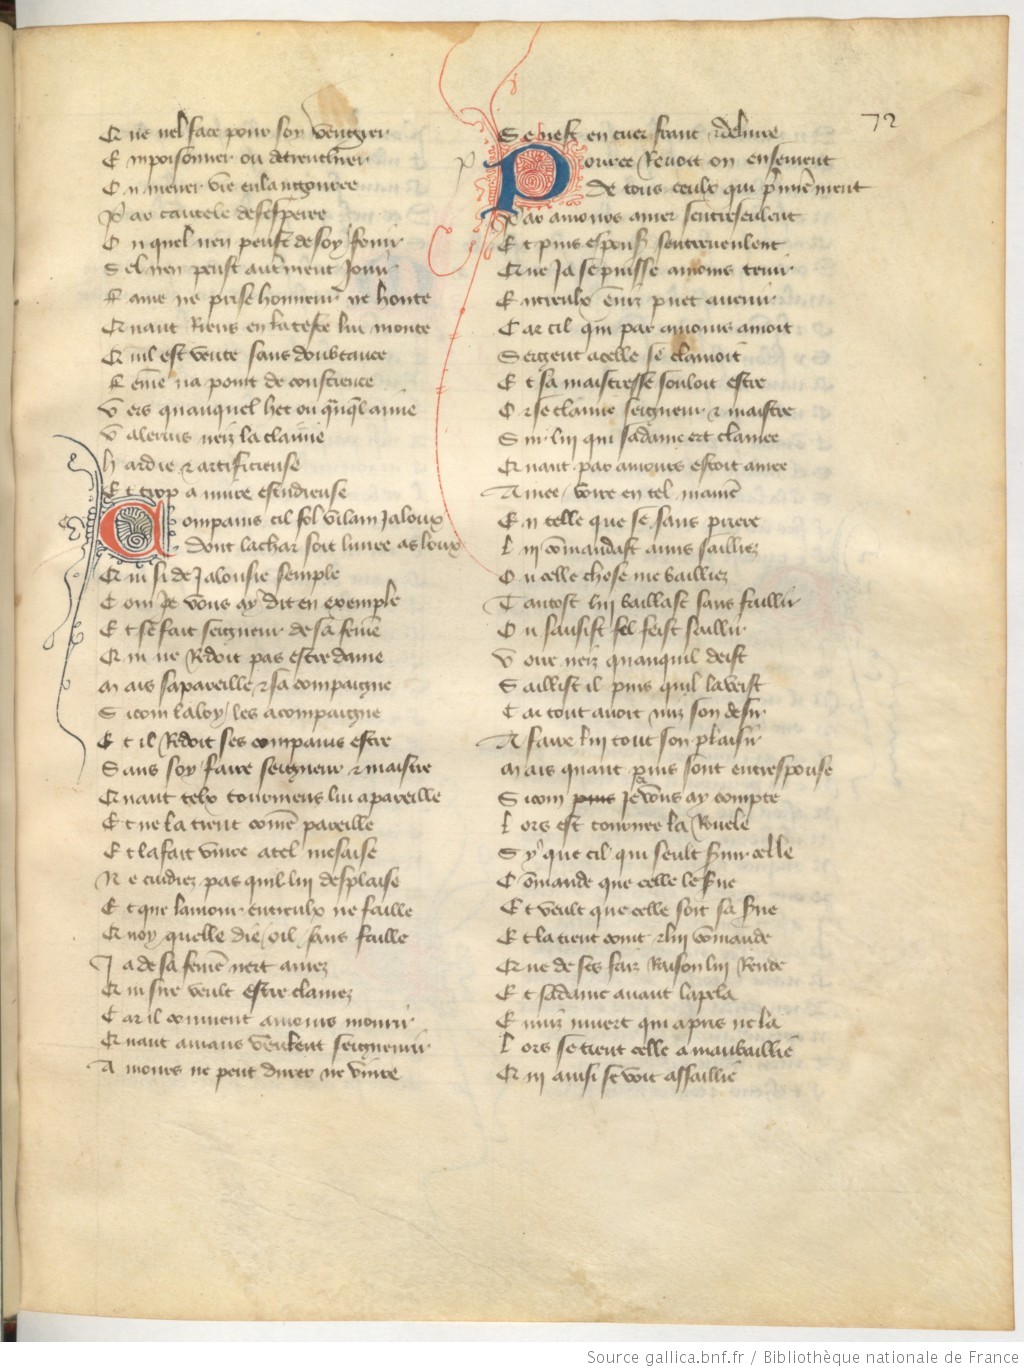 72
Q ue nel face pour soy vengier
E mpoisonner ou detrenchier
O u mener vie enlangouree
P ar cautele desesperee
O u quel nen peust de soy jouir
S el nen peust autrement jouir
F ame ne prise honneur ne honte
Q uant Riens en la teste lui monte
Q uil est verite sans doubtance
F eme na point de conscience
V ers quanquel het ou quāquel aime
V alerius neiz la claime
h ardie & artificieuse
E t trop a nuire estudieuse
C ompains cil fol vilain Jaloux
dont la char soit livree as loux
Q ui si de Jalousie semple
C om Je vous ay dit en exemple
E t se fait seigneur de sa feme
Q ui ne Redoit pas estre dame
M ais sa pareille & sa compaigne
S icom la loy les acompaigne
E t il Redoit ses compains estre
S ans soy faire seigneur & maistre
Q uant telx tourmens lui apareille
E t ne la tient come pareille
E t la fait vivre a tel mesaise
N e cuidiez pas quil lui desplaise
E t que lamour entreulx ne faille
Q uoy quelle die oil sans faille
J a de sa feme nert amez
Q ui sire veult estre clamez
C ar il convient amours mourir
Q uant amans veulent seigneurir
A mours ne peut durer ne vivre
S e nest en cuer franc & delivre
P ource Revoit on ensement
De tous ceulx qui prmēment
P ar amours amer sentreseulent
E t puis espouser sentreveulent
Q ue Ja se puisse amours tenir
E ntreulx enviz puet avenir
C ar cil qui par amours amoit
S ergent a celle se clamoit
E t sa maistresse souloit estre
O r se claime seigneur & maistre
S ur lui qui sa dame ert clamee
Q uant par amours estoit amee
A mee voire en tel maniē
E n telle que se sans priere
L ui comandast amis sailliez
O u celle chose me bailliez
T antost lui baillast sans faillir
O u sausist sel feist saillir
V oire neiz quanquil deist
S aillist il puis quil la veist
C ar tout avoit mis son desir
A faire lui tout son plaisir
M ais quant puis sont entrespouse
S icom Je vous ay compte
L ors est tournee la Rouele
S y que cil qui seult servir celle
C omande que celle le serve
E t veult que celle soit sa serve
E t la tient court & lui comande
Q ue de ses faiz Raison lui Rende
E t sa dame avant lapela
E nuiz muert qui apris ne la
L ors se tient celle a maubaillie
Q ui ainsi se voit assaillie
Source gallica.bnf.fr / Bibliothèque nationale de France